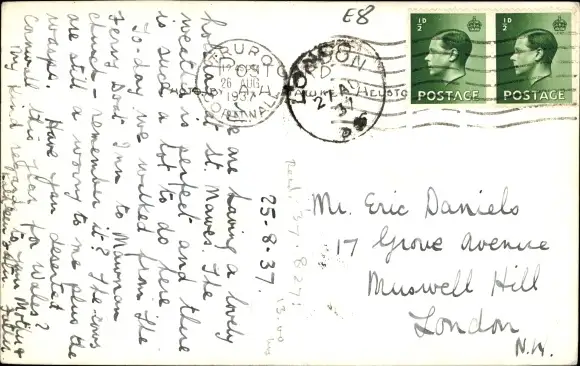 E8
½D
½D
POSTAGE
POSTAGE
TRURO
26 AUG
1937
CORNWALL
LONDON
27 AU
37
25-8-37.
We are having a lovely
holiday at St. Mawes. The
weather is perfect and there
is such a lot to do here
To-day we walked from The
Ferry Boat Inn to Mawnan
church - remember it? The cows
are still a worry to me plus the
wasps. Have you deserted
Cornwall this year for Wales?
My kind regards to your Mother
Mr. Eric Daniels
17 Grove Avenue
Muswell Hill
London
N.W.